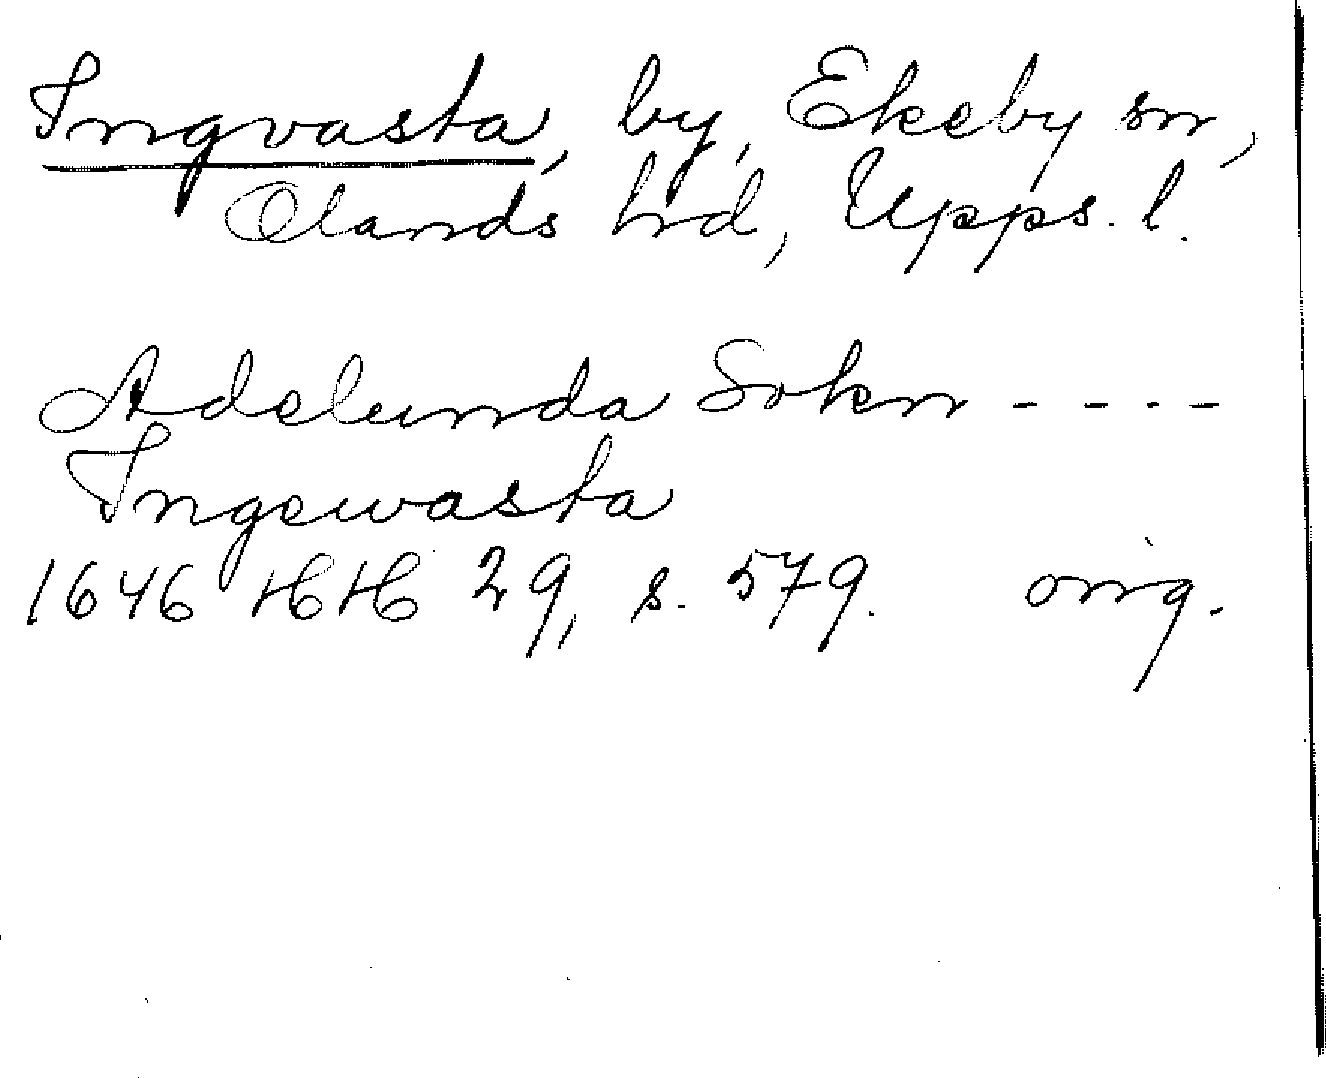 Ingvasta, by, Ekeby sn,
Olands hd, Upps. l.
Adelunda Sokn - - - -
Ingewasta
1646 HH 29, s. 579. orig.